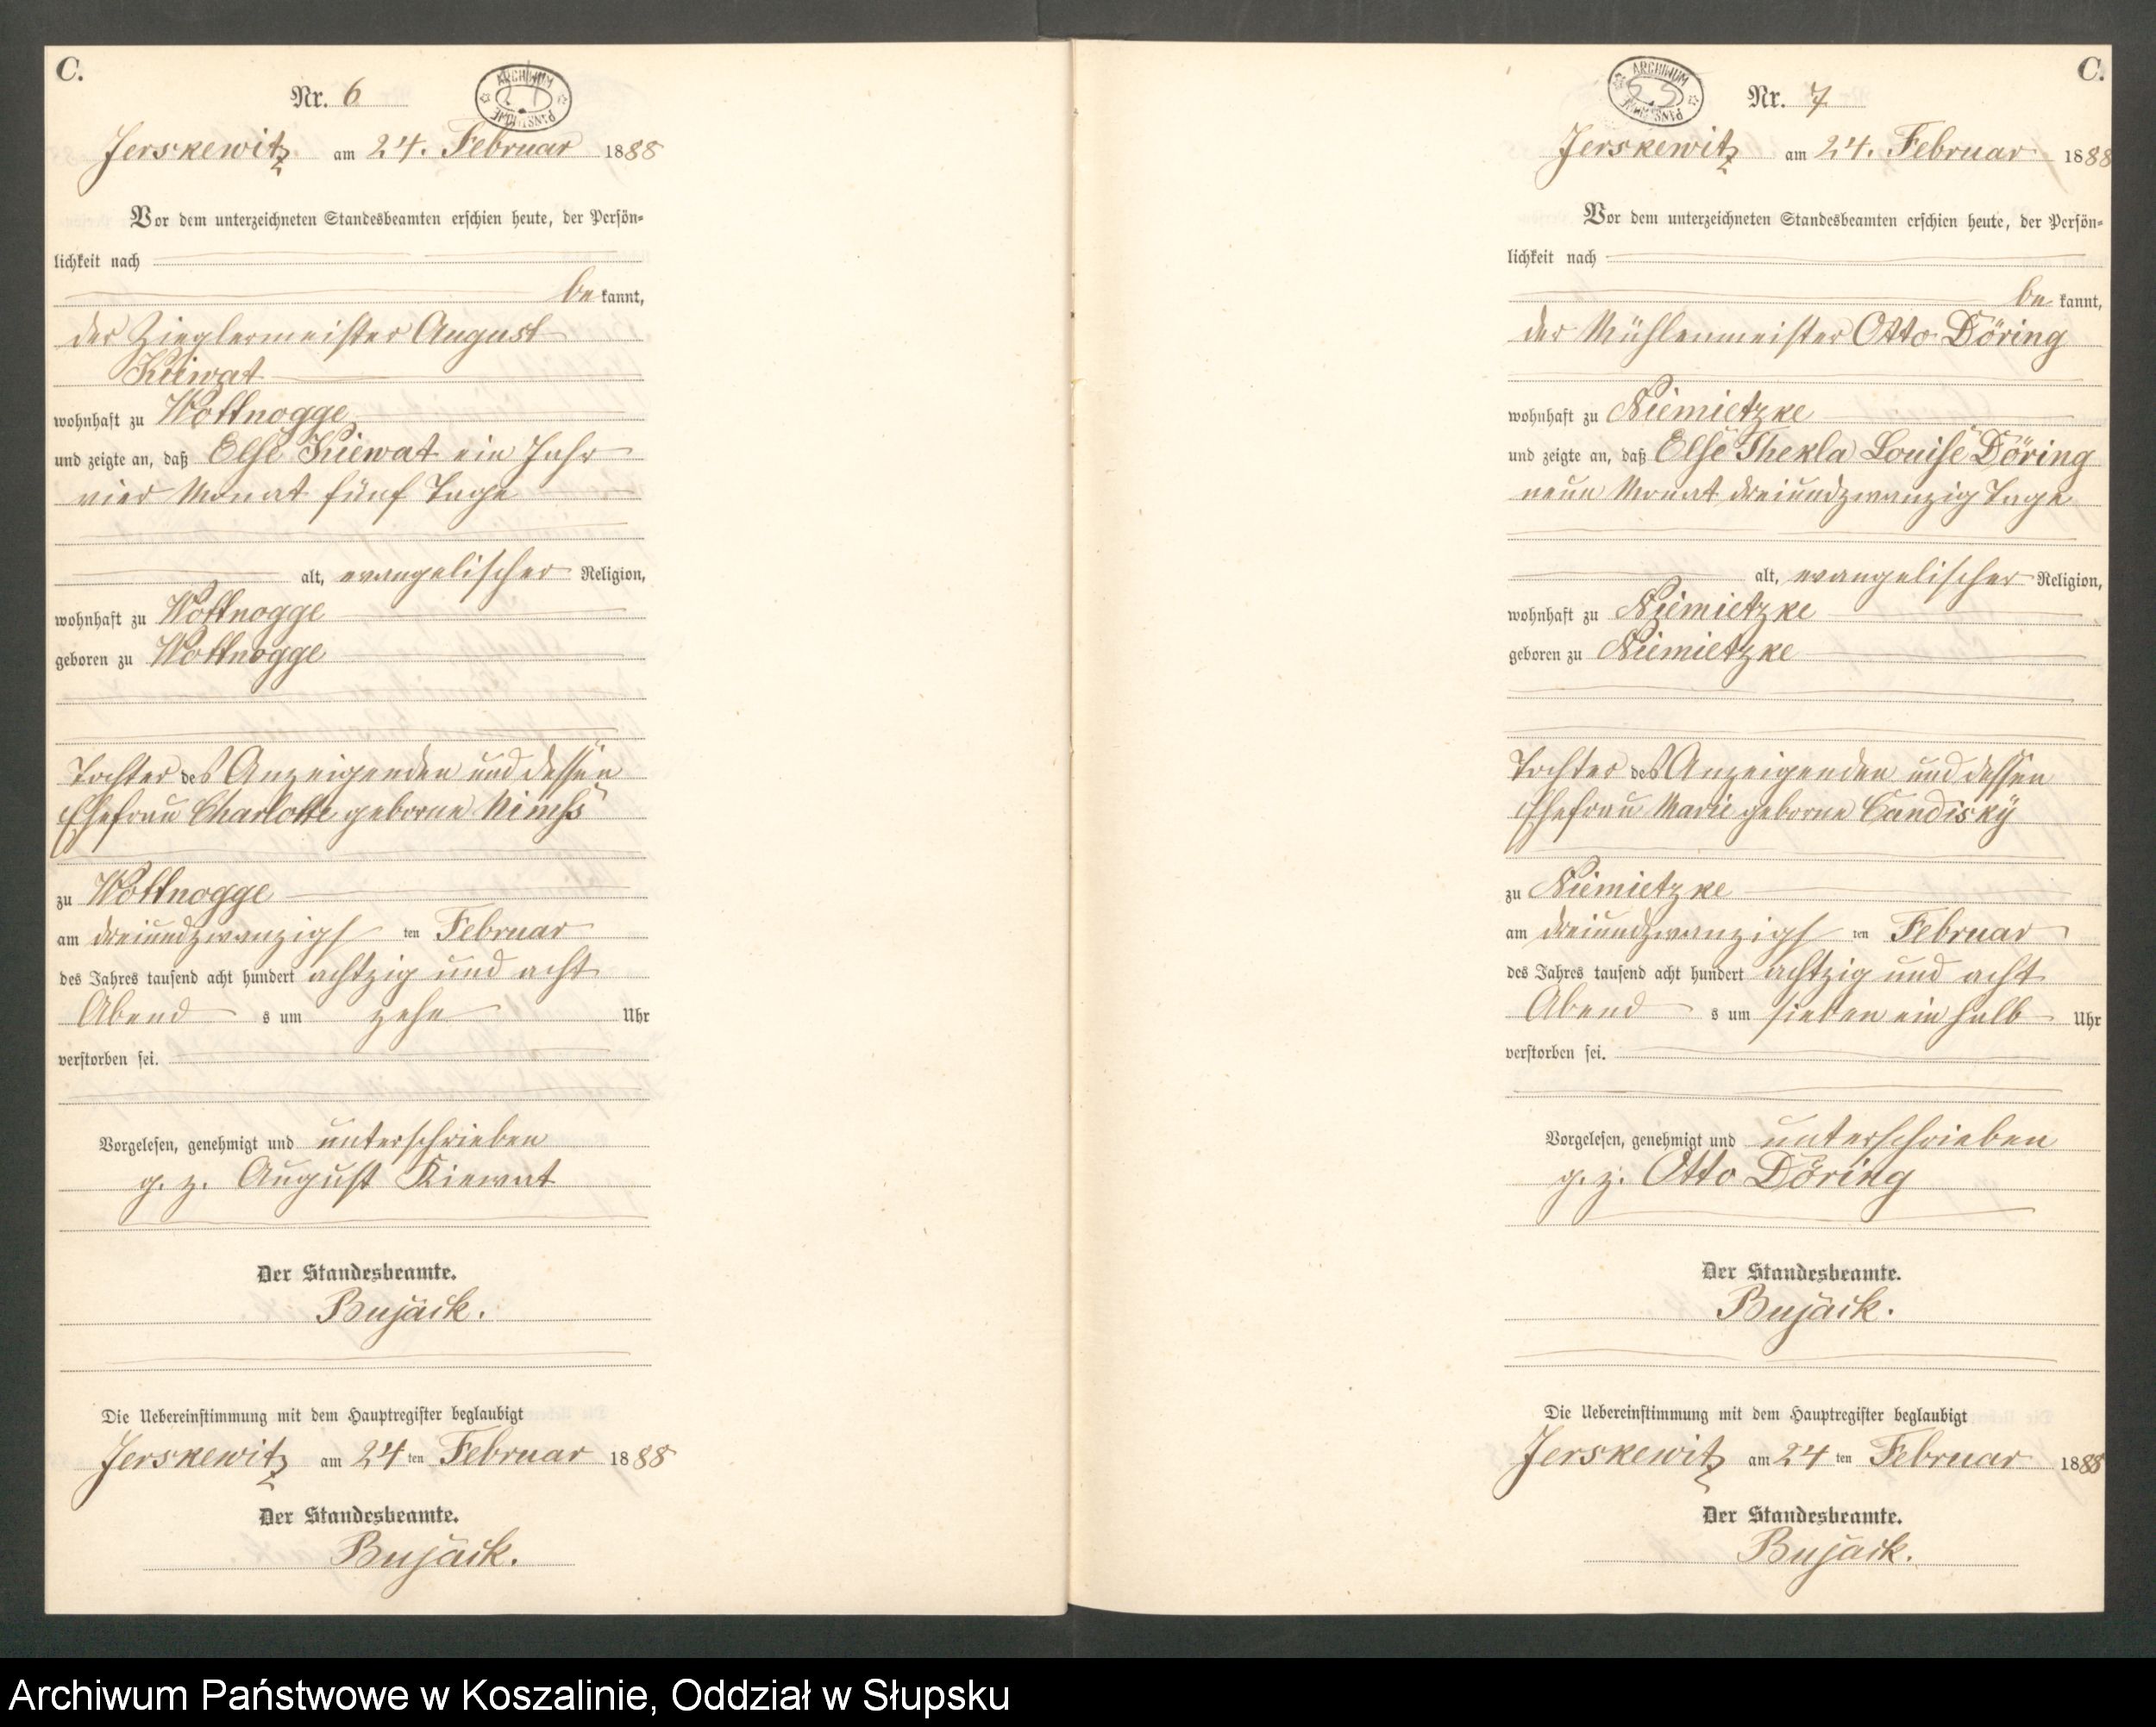 C.
Nr. 6
ARCHIWUM PAŃSTWOWE
Jerskewitz am 24. Februar 1888
Vor dem unterzeichneten Standesbeamten erschien heute, der Persön-
lichkeit nach
be kannt,
der Zieglermeister August
Kiewat
wohnhaft zu Wottnogge
und zeigte an, daß Else Kiewat ein Jahr
vier Monat fünf Tage
alt, evangelischer Religion,
wohnhaft zu Wottnogge
geboren zu Wottnogge
Tochter des Anzeigenden und dessen
Ehefrau Charlotte geborne
zu Wottnogge
am dreiundzwanzigs ten Februar
des Jahres tausend acht hundert achtzig und acht
Abend s um zehn Uhr
verstorben sei.
Vorgelesen, genehmigt und unterschrieben
g. z. August Kiewat
Der Standesbeamte.
Bujack.
Die Uebereinstimmung mit dem Hauptregister beglaubigt
Jerskewitz am 24 ten Februar 1888
Der Standesbeamte.
Bujack.
C.
Nr. 7
ARCHIWUM PAŃSTWOWE
Jerskewitz am 24. Februar 1888
Vor dem unterzeichneten Standesbeamten erschien heute, der Persön-
lichkeit nach
be kannt,
der Mühlenmeister Otto Döring
wohnhaft zu Niemietzke
und zeigte an, daß Else Thekla Louise Döring
neun Monat dreiundzwanzig Tage
alt, evangelischer Religion,
wohnhaft zu Niemietzke
geboren zu Niemietzke
Tochter des Anzeigenden und dessen
Ehefrau Marie geborne Candisky
zu Niemietzke
am dreiundzwanzigs ten Februar
des Jahres tausend acht hundert achtzig und acht
Abend s um sieben ein halb Uhr
verstorben sei.
Vorgelesen, genehmigt und unterschrieben
g. z. Otto Döring
Der Standesbeamte.
Bujack.
Die Uebereinstimmung mit dem Hauptregister beglaubigt
Jerskewitz am 24 ten Februar 1888
Der Standesbeamte.
Bujack.
Archiwum Państwowe w Koszalinie, Oddział w Słupsku